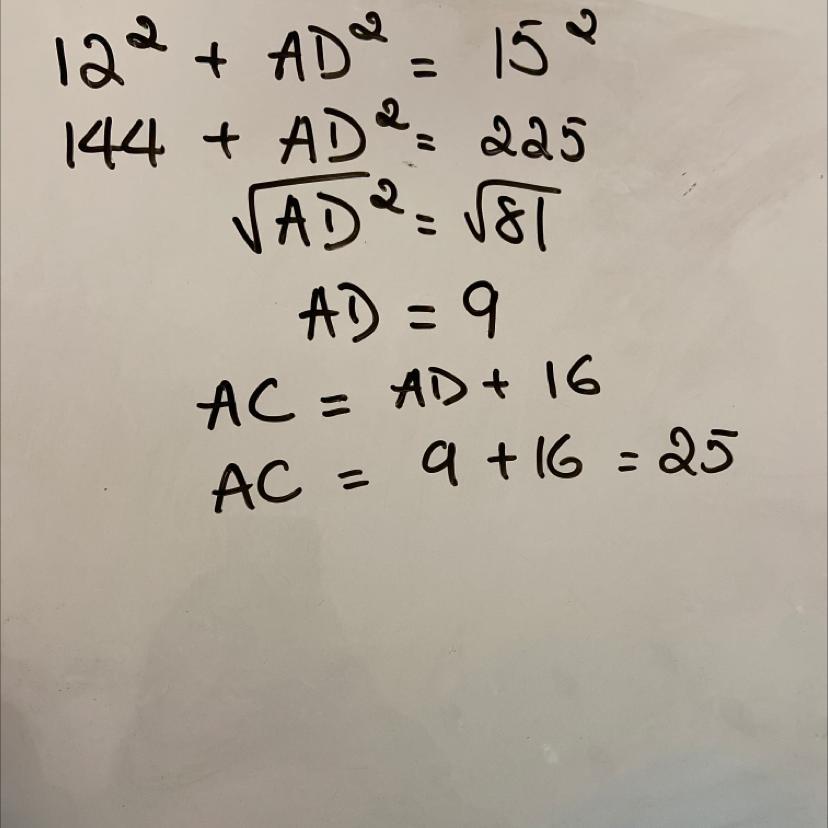 12² + AD² = 15²
144 + AD² = 225
√AD² = √81
AD = 9
AC = AD + 16
AC = 9 + 16 = 25